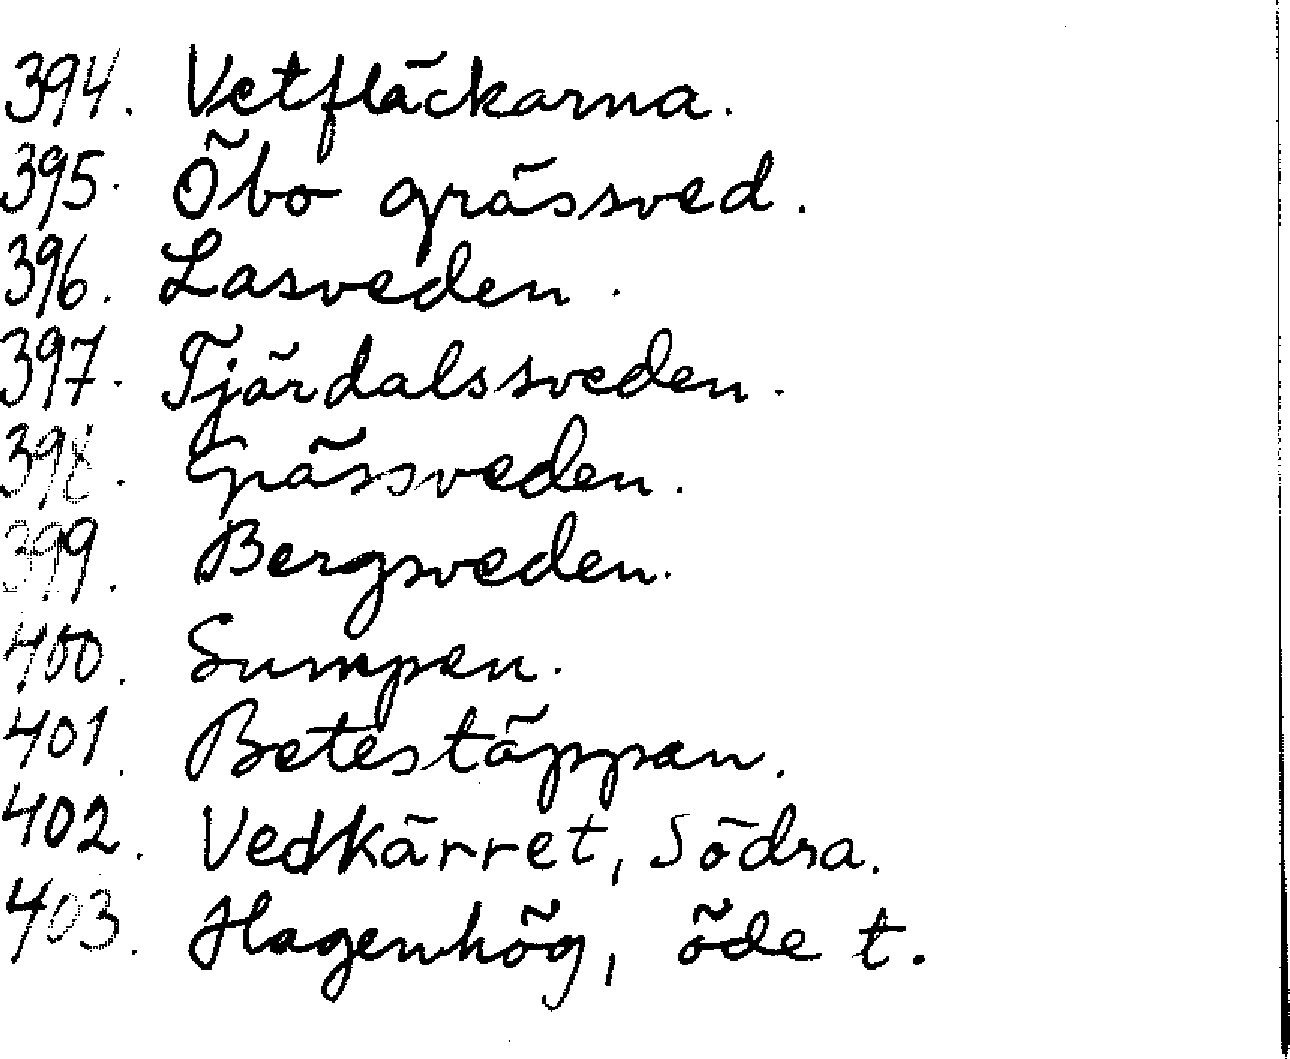 394. Vetfläckarna.
395. Öbo grässved.
396. Lasveden.
397. Tjärdalssveden.
398. Grässveden.
399. Bergsveden.
400. Sumpen.
401. Betestäppan.
402. Vedkärret, Södra.
403. Hagenhög, öde t.